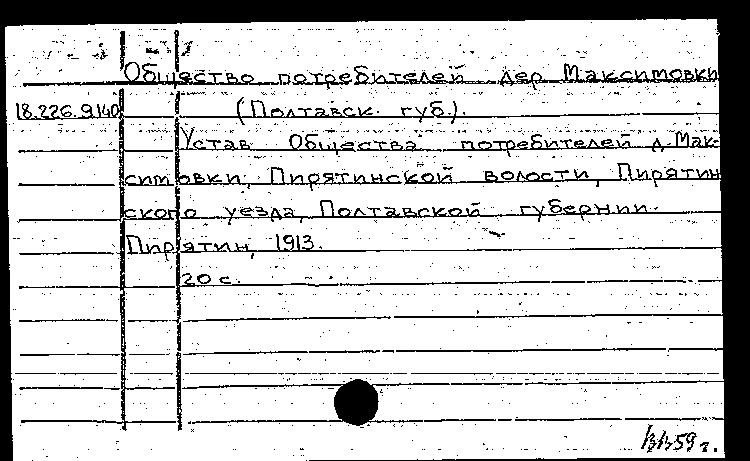 Общество потребителей дер Максимовки
18.226.9.140 (Полтавск. губ.).
Устав Общества потребителей д. Мак-
симовки, Пирятинской волости, Пирятин
ского уезда, Полтавской губернии.
Пирятин, 1913.
20 с.